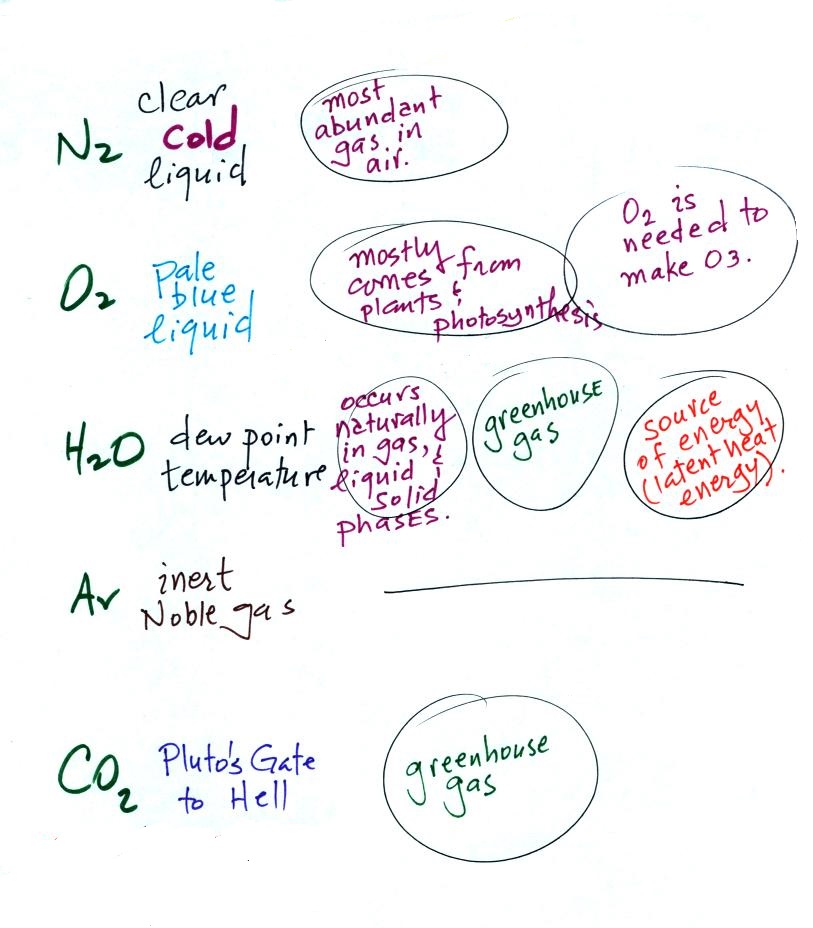 N2
clear
cold
liquid
most
abundant
gas in
air.
O2
pale
blue
liquid
mostly
comes from
plants &
photosynthesis
O2 is
needed to
make O3.
H2O
dew point
temperature
occurs
naturally
in gas,
liquid &
solid
phases.
greenhouse
gas
source
of energy
(latent heat
energy).
Ar
inert
Noble gas
CO2
Pluto's Gate
to Hell
greenhouse
gas